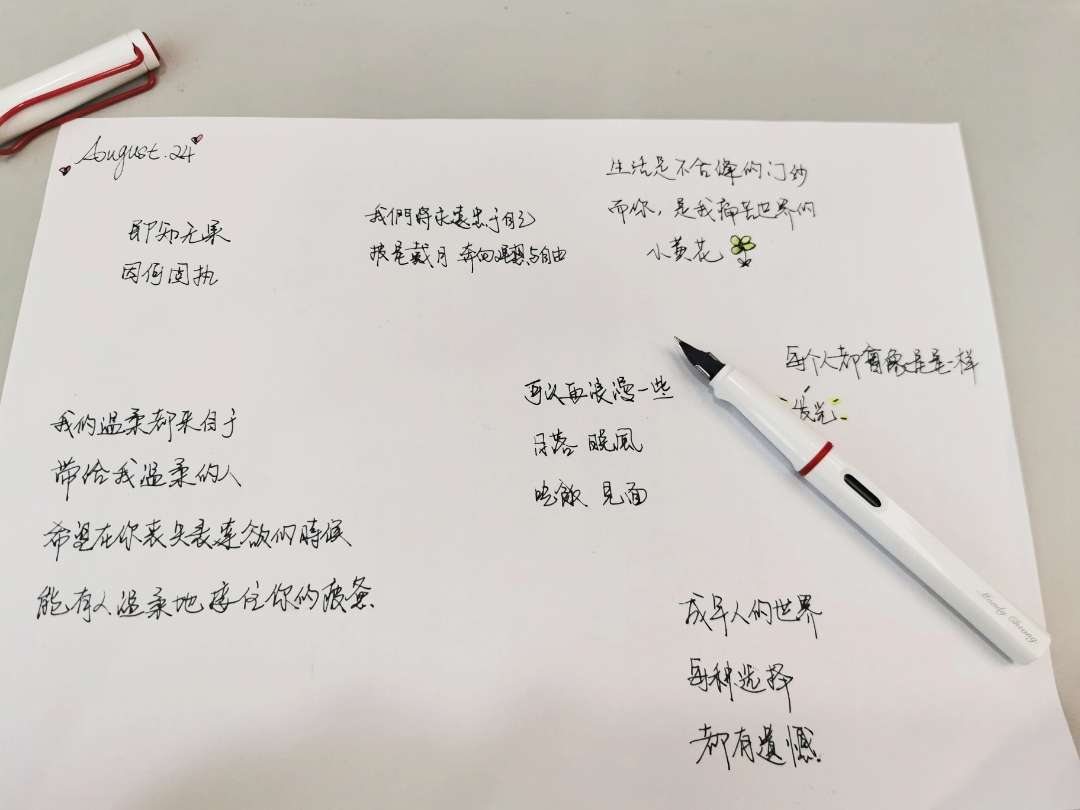 August.24
即知无果
因何固执
我們將永遠忠于自己
披星戴月 奔向理想与自由
生活是不合缘的门纱
而你，是我痛苦世界的
小黄花
每个人都會像星星一样
发光
可以再浪漫一些
日落 晚風
吃飯 見面
我的温柔都来自于
带给我温柔的人
希望在你丧失表達欲的時候
能有人温柔地接住你的疲惫
成年人的世界
每种选择
都有遺憾
Mandy Cheong